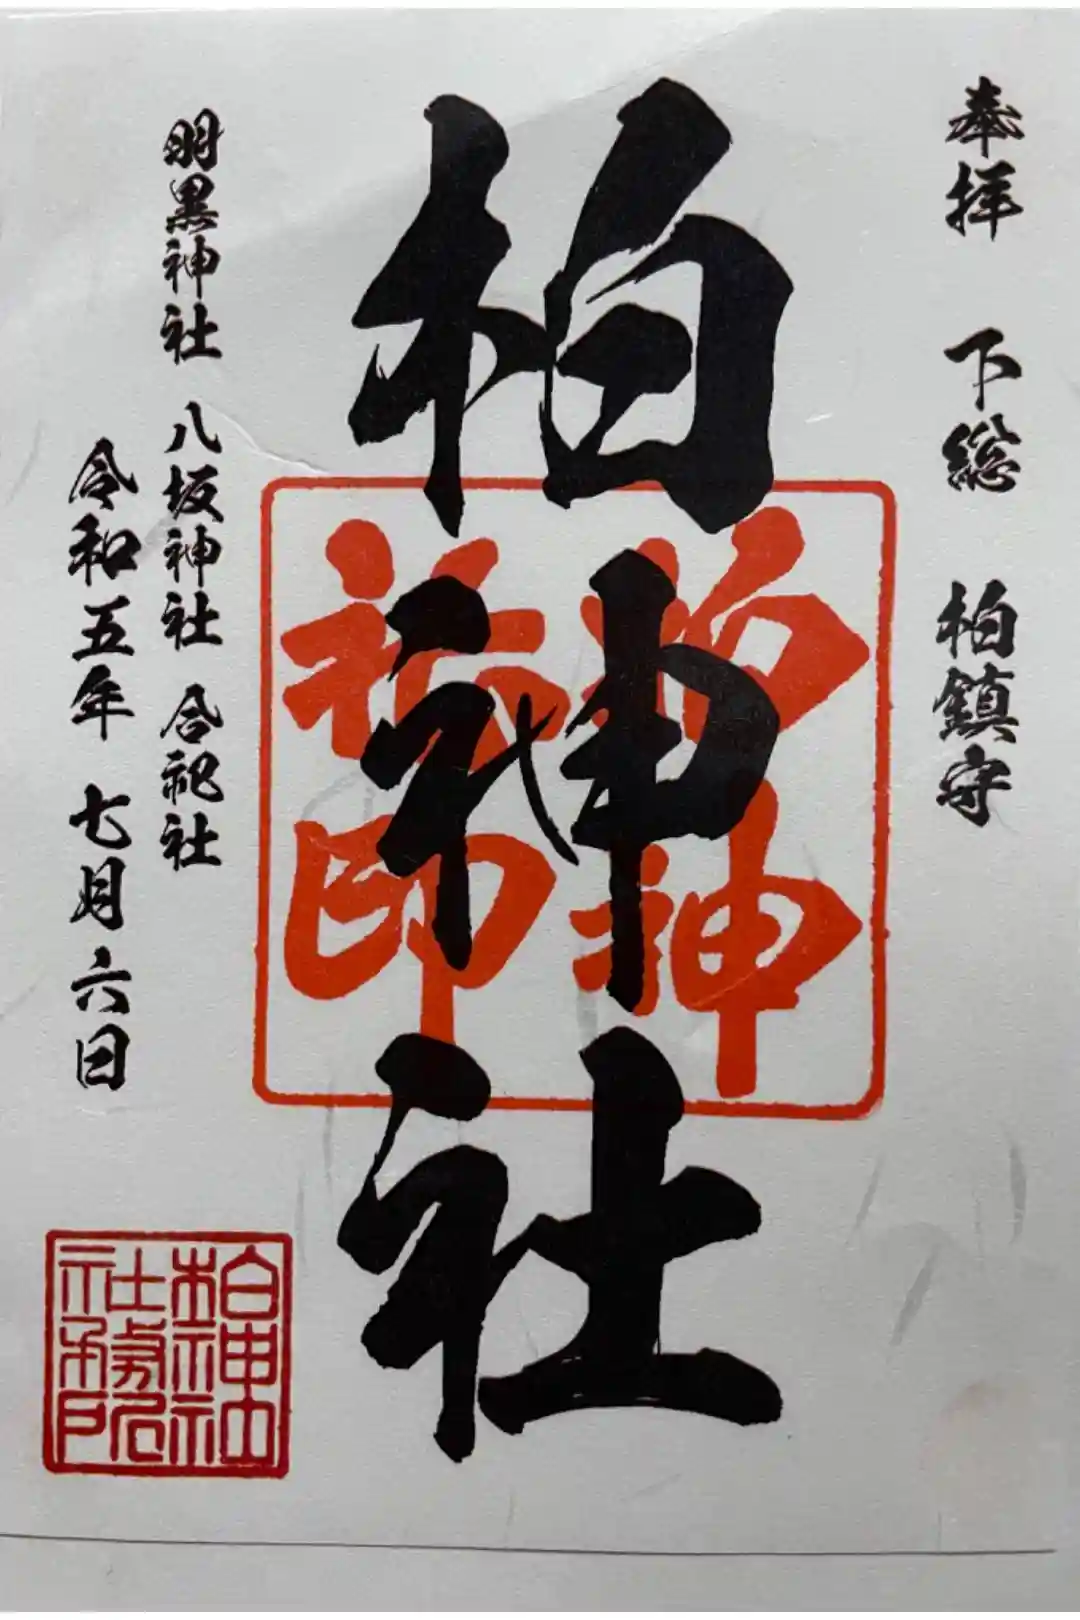 奉拝 下総 柏鎮守
柏神社
羽黒神社 八坂神社 合祀社
令和五年 七月六日
柏神
社印
柏神社
社務所